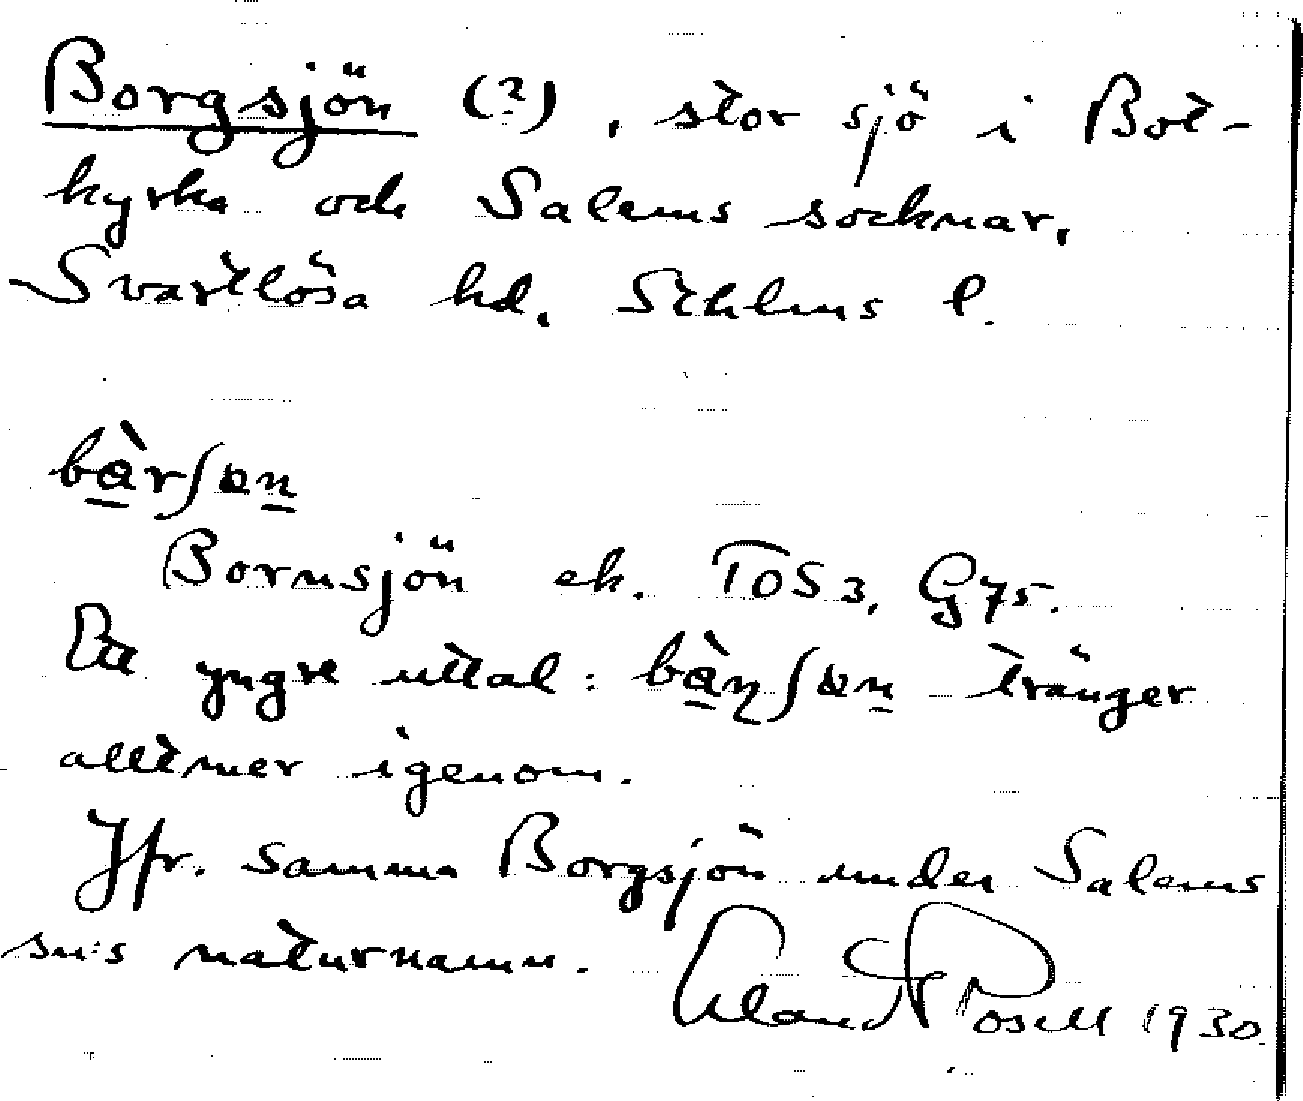 Borgsjön (?), stor sjö i Bot-
kyrka och Salems socknar,
Svartlösa hd, Sthlms l.
bàrʃɷn
Bornsjön ek. TOS3, G75.
Ett yngre uttal: bàꞃʃɷn tränger
alltmer igenom.
Jfr. samma Borgsjön under Salems
sn:s naturnamn. Rosell 1930